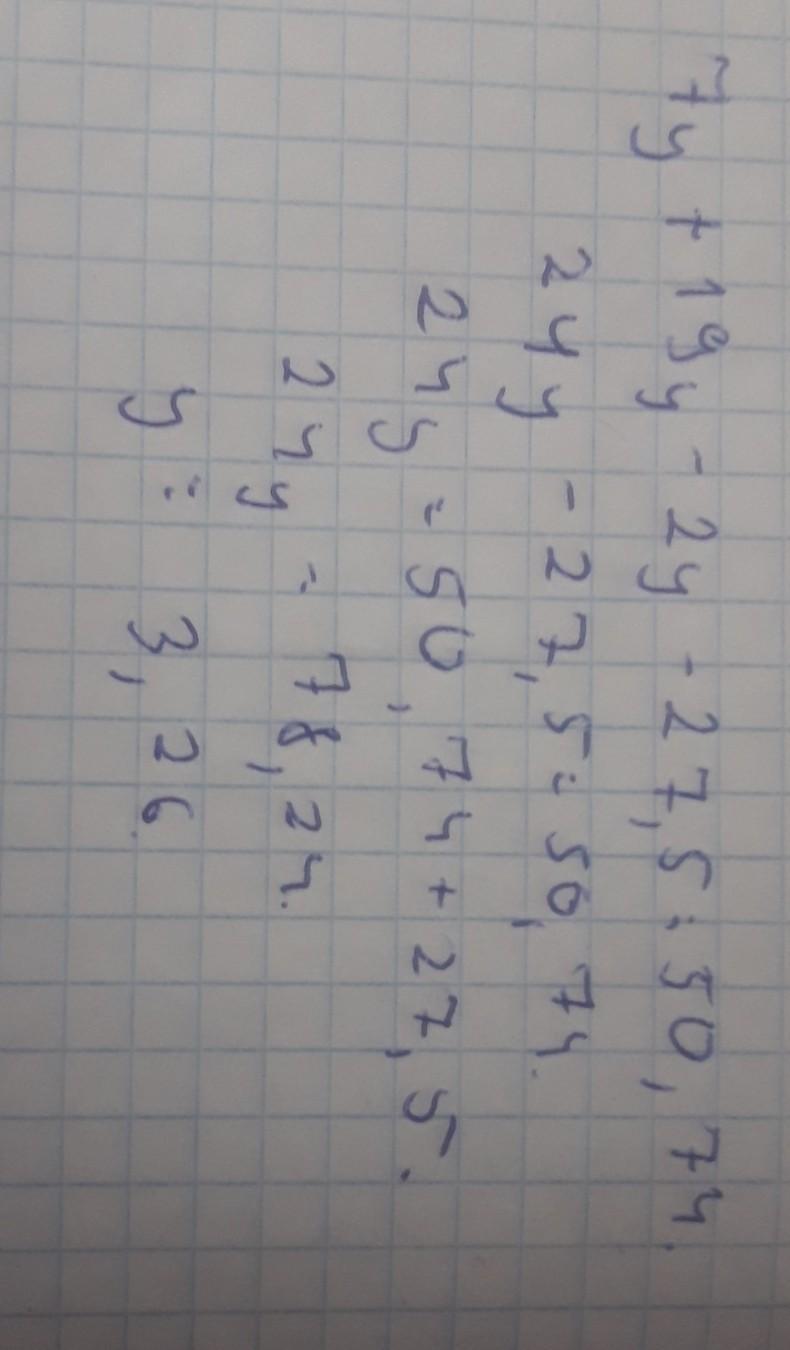 7y + 19y - 2y - 27,5 = 50,74.
24y - 27,5 = 50,74.
24y = 50,74 + 27,5.
24y = 78,24.
y = 3,26.